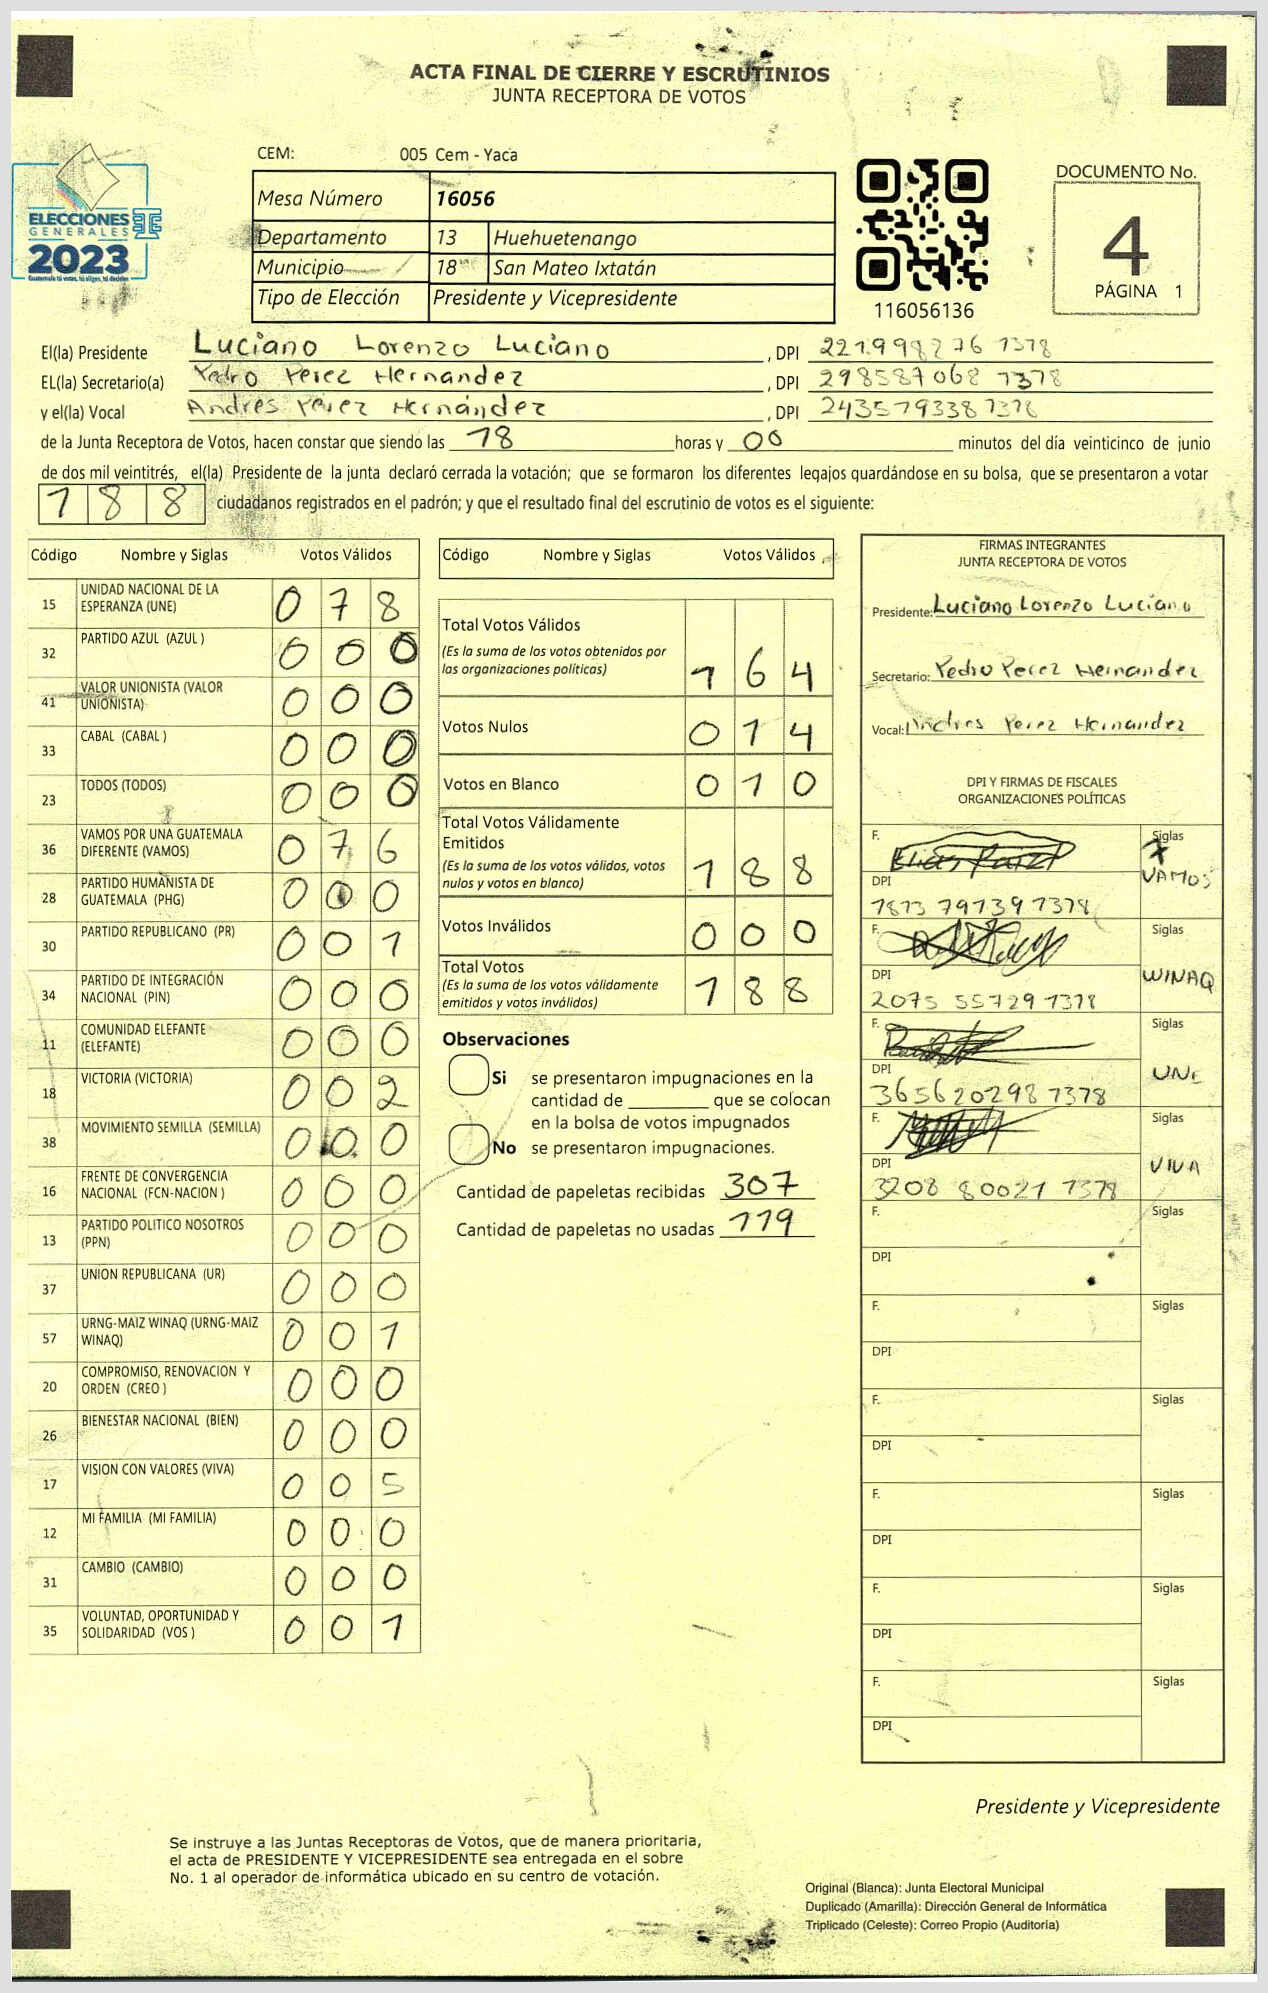 ACTA FINAL DE CIERRE Y ESCRUTINIOS
JUNTA RECEPTORA DE VOTOS
CEM: 005 Cem - Yaca
ELECCIONES
GENERALES
2023
Guatemala tú votas, tú eliges, tú decides
Mesa Número 16056
Departamento 13 Huehuetenango
Municipio 18 San Mateo Ixtatán
Tipo de Elección Presidente y Vicepresidente
116056136
DOCUMENTO No.
4
PÁGINA 1
El(la) Presidente Luciano Lorenzo Luciano , DPI 221998276 1378
EL(la) Secretario(a) Pedro Perez Hernandez , DPI 298587068 1378
y el(la) Vocal Andres Pérez Hernández , DPI 243579338 1378
de la Junta Receptora de Votos, hacen constar que siendo las 18 horas y 00 minutos del día veinticinco de junio
de dos mil veintitrés, el(la) Presidente de la junta declaró cerrada la votación; que se formaron los diferentes legajos quardándose en su bolsa, que se presentaron a votar
188 ciudadanos registrados en el padrón; y que el resultado final del escrutinio de votos es el siguiente:
Código Nombre y Siglas Votos Válidos
15 UNIDAD NACIONAL DE LA ESPERANZA (UNE) 078
32 PARTIDO AZUL (AZUL ) 000
41 VALOR UNIONISTA (VALOR UNIONISTA) 000
33 CABAL (CABAL ) 000
23 TODOS (TODOS) 000
36 VAMOS POR UNA GUATEMALA DIFERENTE (VAMOS) 076
28 PARTIDO HUMANISTA DE GUATEMALA (PHG) 000
30 PARTIDO REPUBLICANO (PR) 001
34 PARTIDO DE INTEGRACIÓN NACIONAL (PIN) 000
11 COMUNIDAD ELEFANTE (ELEFANTE) 000
18 VICTORIA (VICTORIA) 002
38 MOVIMIENTO SEMILLA (SEMILLA) 000
16 FRENTE DE CONVERGENCIA NACIONAL (FCN-NACION ) 000
13 PARTIDO POLITICO NOSOTROS (PPN) 000
37 UNION REPUBLICANA (UR) 000
57 URNG-MAIZ WINAQ (URNG-MAIZ WINAQ) 001
20 COMPROMISO, RENOVACION Y ORDEN (CREO ) 000
26 BIENESTAR NACIONAL (BIEN) 000
17 VISION CON VALORES (VIVA) 005
12 MI FAMILIA (MI FAMILIA) 000
31 CAMBIO (CAMBIO) 000
35 VOLUNTAD, OPORTUNIDAD Y SOLIDARIDAD (VOS ) 001
Código Nombre y Siglas Votos Válidos
Total Votos Válidos
(Es la suma de los votos obtenidos por
las organizaciones políticas) 164
Votos Nulos 014
Votos en Blanco 010
Total Votos Válidamente
Emitidos
(Es la suma de los votos válidos, votos
nulos y votos en blanco) 188
Votos Inválidos 000
Total Votos
(Es la suma de los votos válidamente
emitidos y votos inválidos) 188
Observaciones
Si se presentaron impugnaciones en la
cantidad de ________ que se colocan
en la bolsa de votos impugnados
No se presentaron impugnaciones.
Cantidad de papeletas recibidas 307
Cantidad de papeletas no usadas 119
FIRMAS INTEGRANTES
JUNTA RECEPTORA DE VOTOS
Presidente: Luciano Lorenzo Luciano
Secretario: Pedro Perez Hernandez
Vocal: Andres Perez Hernandez
DPI Y FIRMAS DE FISCALES
ORGANIZACIONES POLÍTICAS
F. Siglas
VAMOS
DPI
1813 79739 1378
F. Siglas
WINAQ
DPI
2075 55729 1378
F. Siglas
UNE
DPI
365620298 1378
F. Siglas
VIVA
DPI
3208 80021 1378
F. Siglas
DPI
F. Siglas
DPI
F. Siglas
DPI
F. Siglas
DPI
F. Siglas
DPI
F. Siglas
DPI
Presidente y Vicepresidente
Se instruye a las Juntas Receptoras de Votos, que de manera prioritaria,
el acta de PRESIDENTE Y VICEPRESIDENTE sea entregada en el sobre
No. 1 al operador de informática ubicado en su centro de votación.
Original (Blanca): Junta Electoral Municipal
Duplicado (Amarilla): Dirección General de Informática
Triplicado (Celeste): Correo Propio (Auditoría)